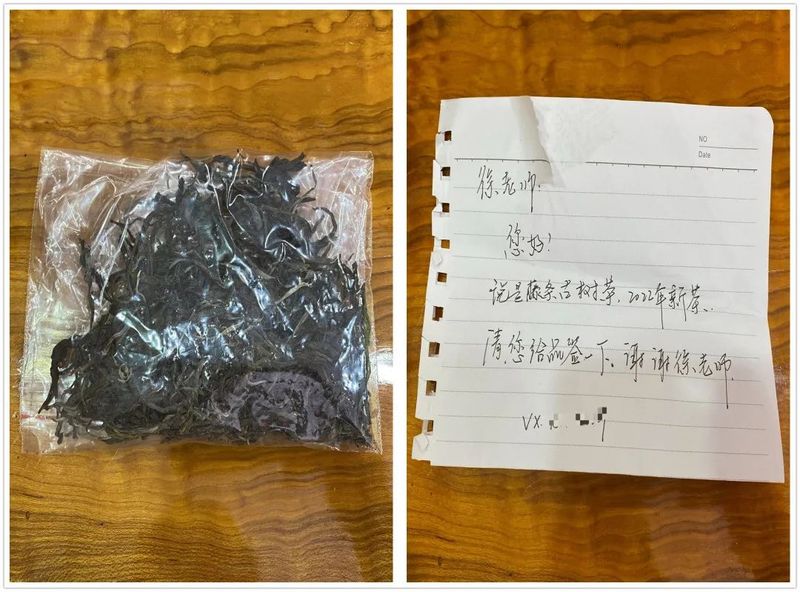 NO
Date
徐老师.
您好!
说是藤条古树茶,2022年新茶..
请您给品鉴一下,谢谢徐老师.
VX.